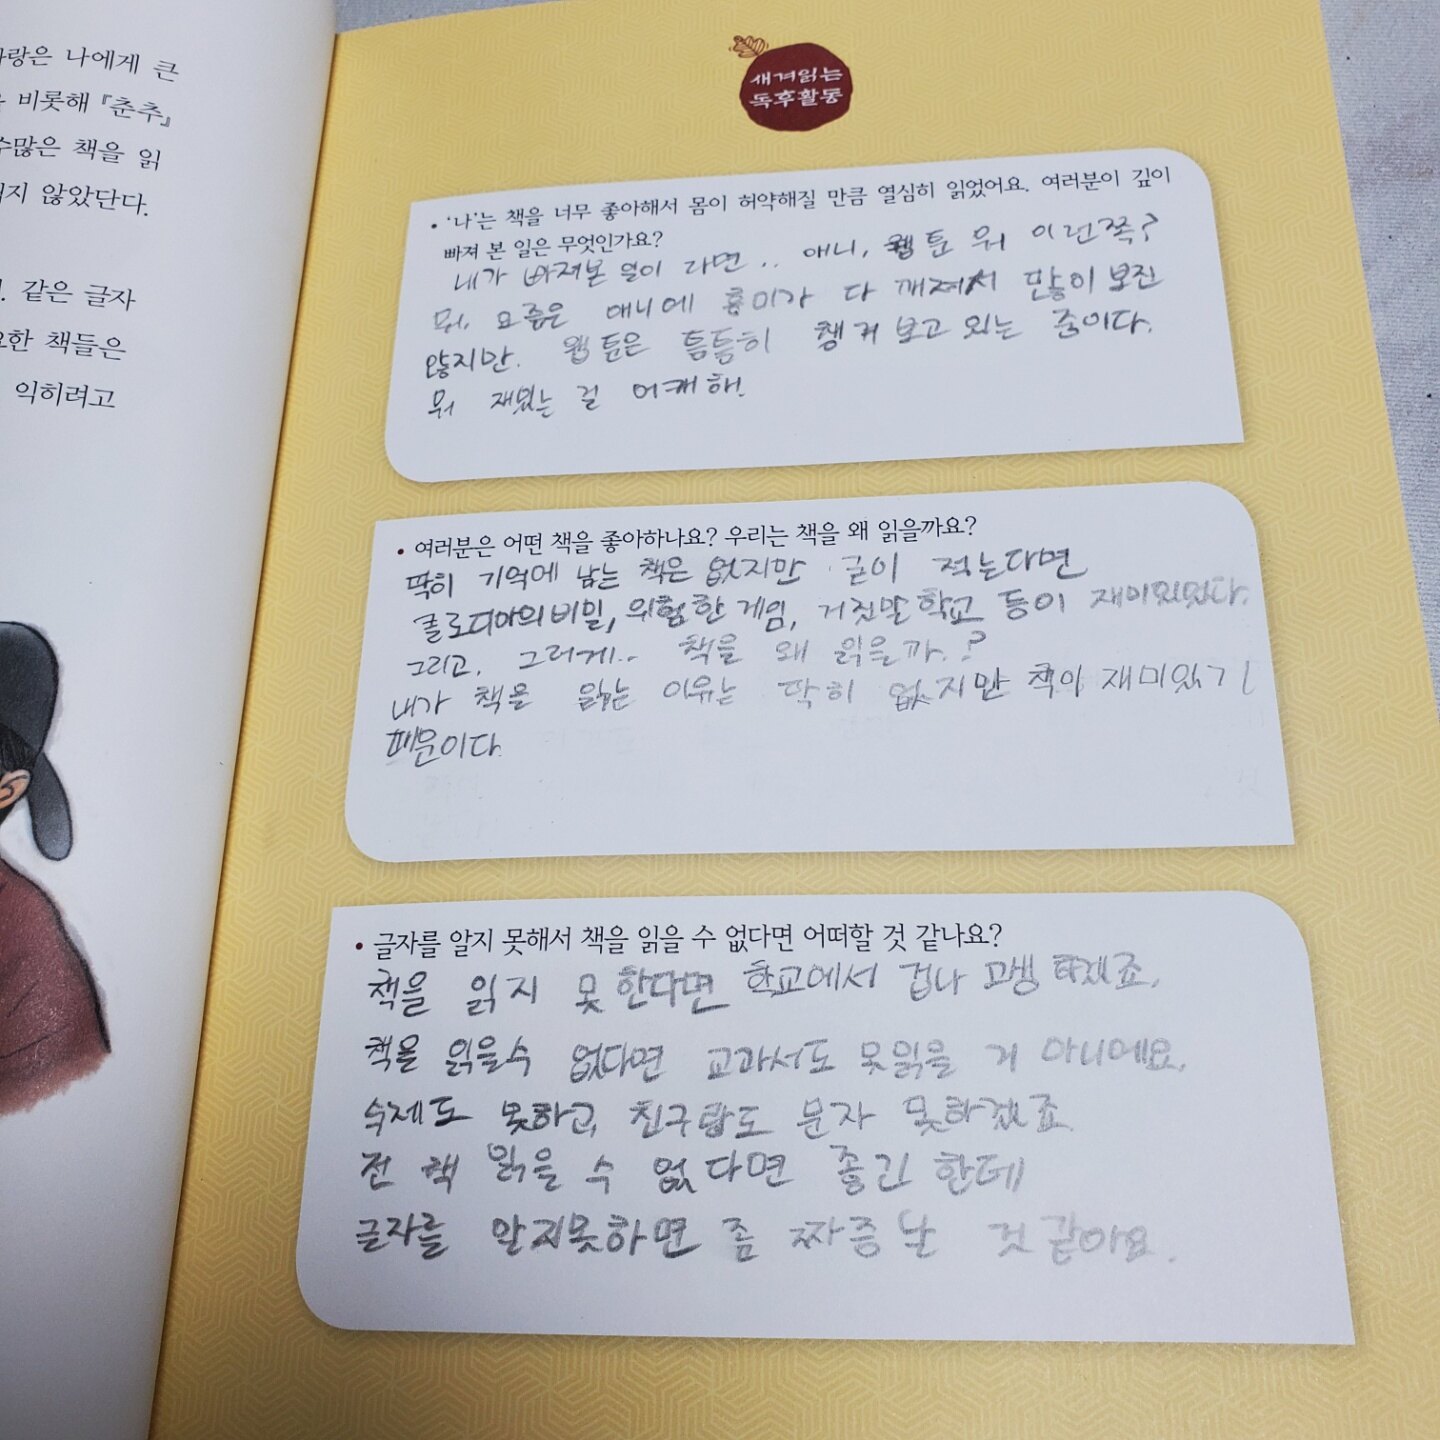 사랑은 나에게 큰
비롯해 『춘추』
수많은 책을 읽
지 않았단다.
같은 글자
한 책들은
익히려고
새겨읽는
독후활동
• '나'는 책을 너무 좋아해서 몸이 허약해질 만큼 열심히 읽었어요. 여러분이 깊이
빠져 본 일은 무엇인가요?
내가 빠져본 일이 라면.. 애니, 웹툰 뭐 이런쪽?
뭐, 요즘은 애니에 흥미가 다 깨져서 많이 보진
않지만. 웹툰은 틈틈히 챙겨 보고 있는 중이다.
뭐 재밌는 걸 어캐해!
• 여러분은 어떤 책을 좋아하나요? 우리는 책을 왜 읽을까요?
딱히 기억에 남는 책은 없지만 굳이 적는다면
클로디아의비밀, 위험한게임, 거짓말학교 등이 재미있었다.
그리고, 그러게.. 책을 왜 읽을까.?
내가 책을 읽는 이유는 딱히 없지만 책이 재미있기
때문이다.
• 글자를 알지 못해서 책을 읽을 수 없다면 어떠할 것 같나요?
책을 읽지 못한다면 학교에서 겁나 고생 하겠죠,
책을 읽을수 없다면 교과서도 못읽을 거 아니에요,
숙제도 못하고, 친구랑도 문자 못하겠죠
전 책 읽을 수 없다면 좋긴 한데
글자를 알지못하면 좀 짜증날 것같아요.